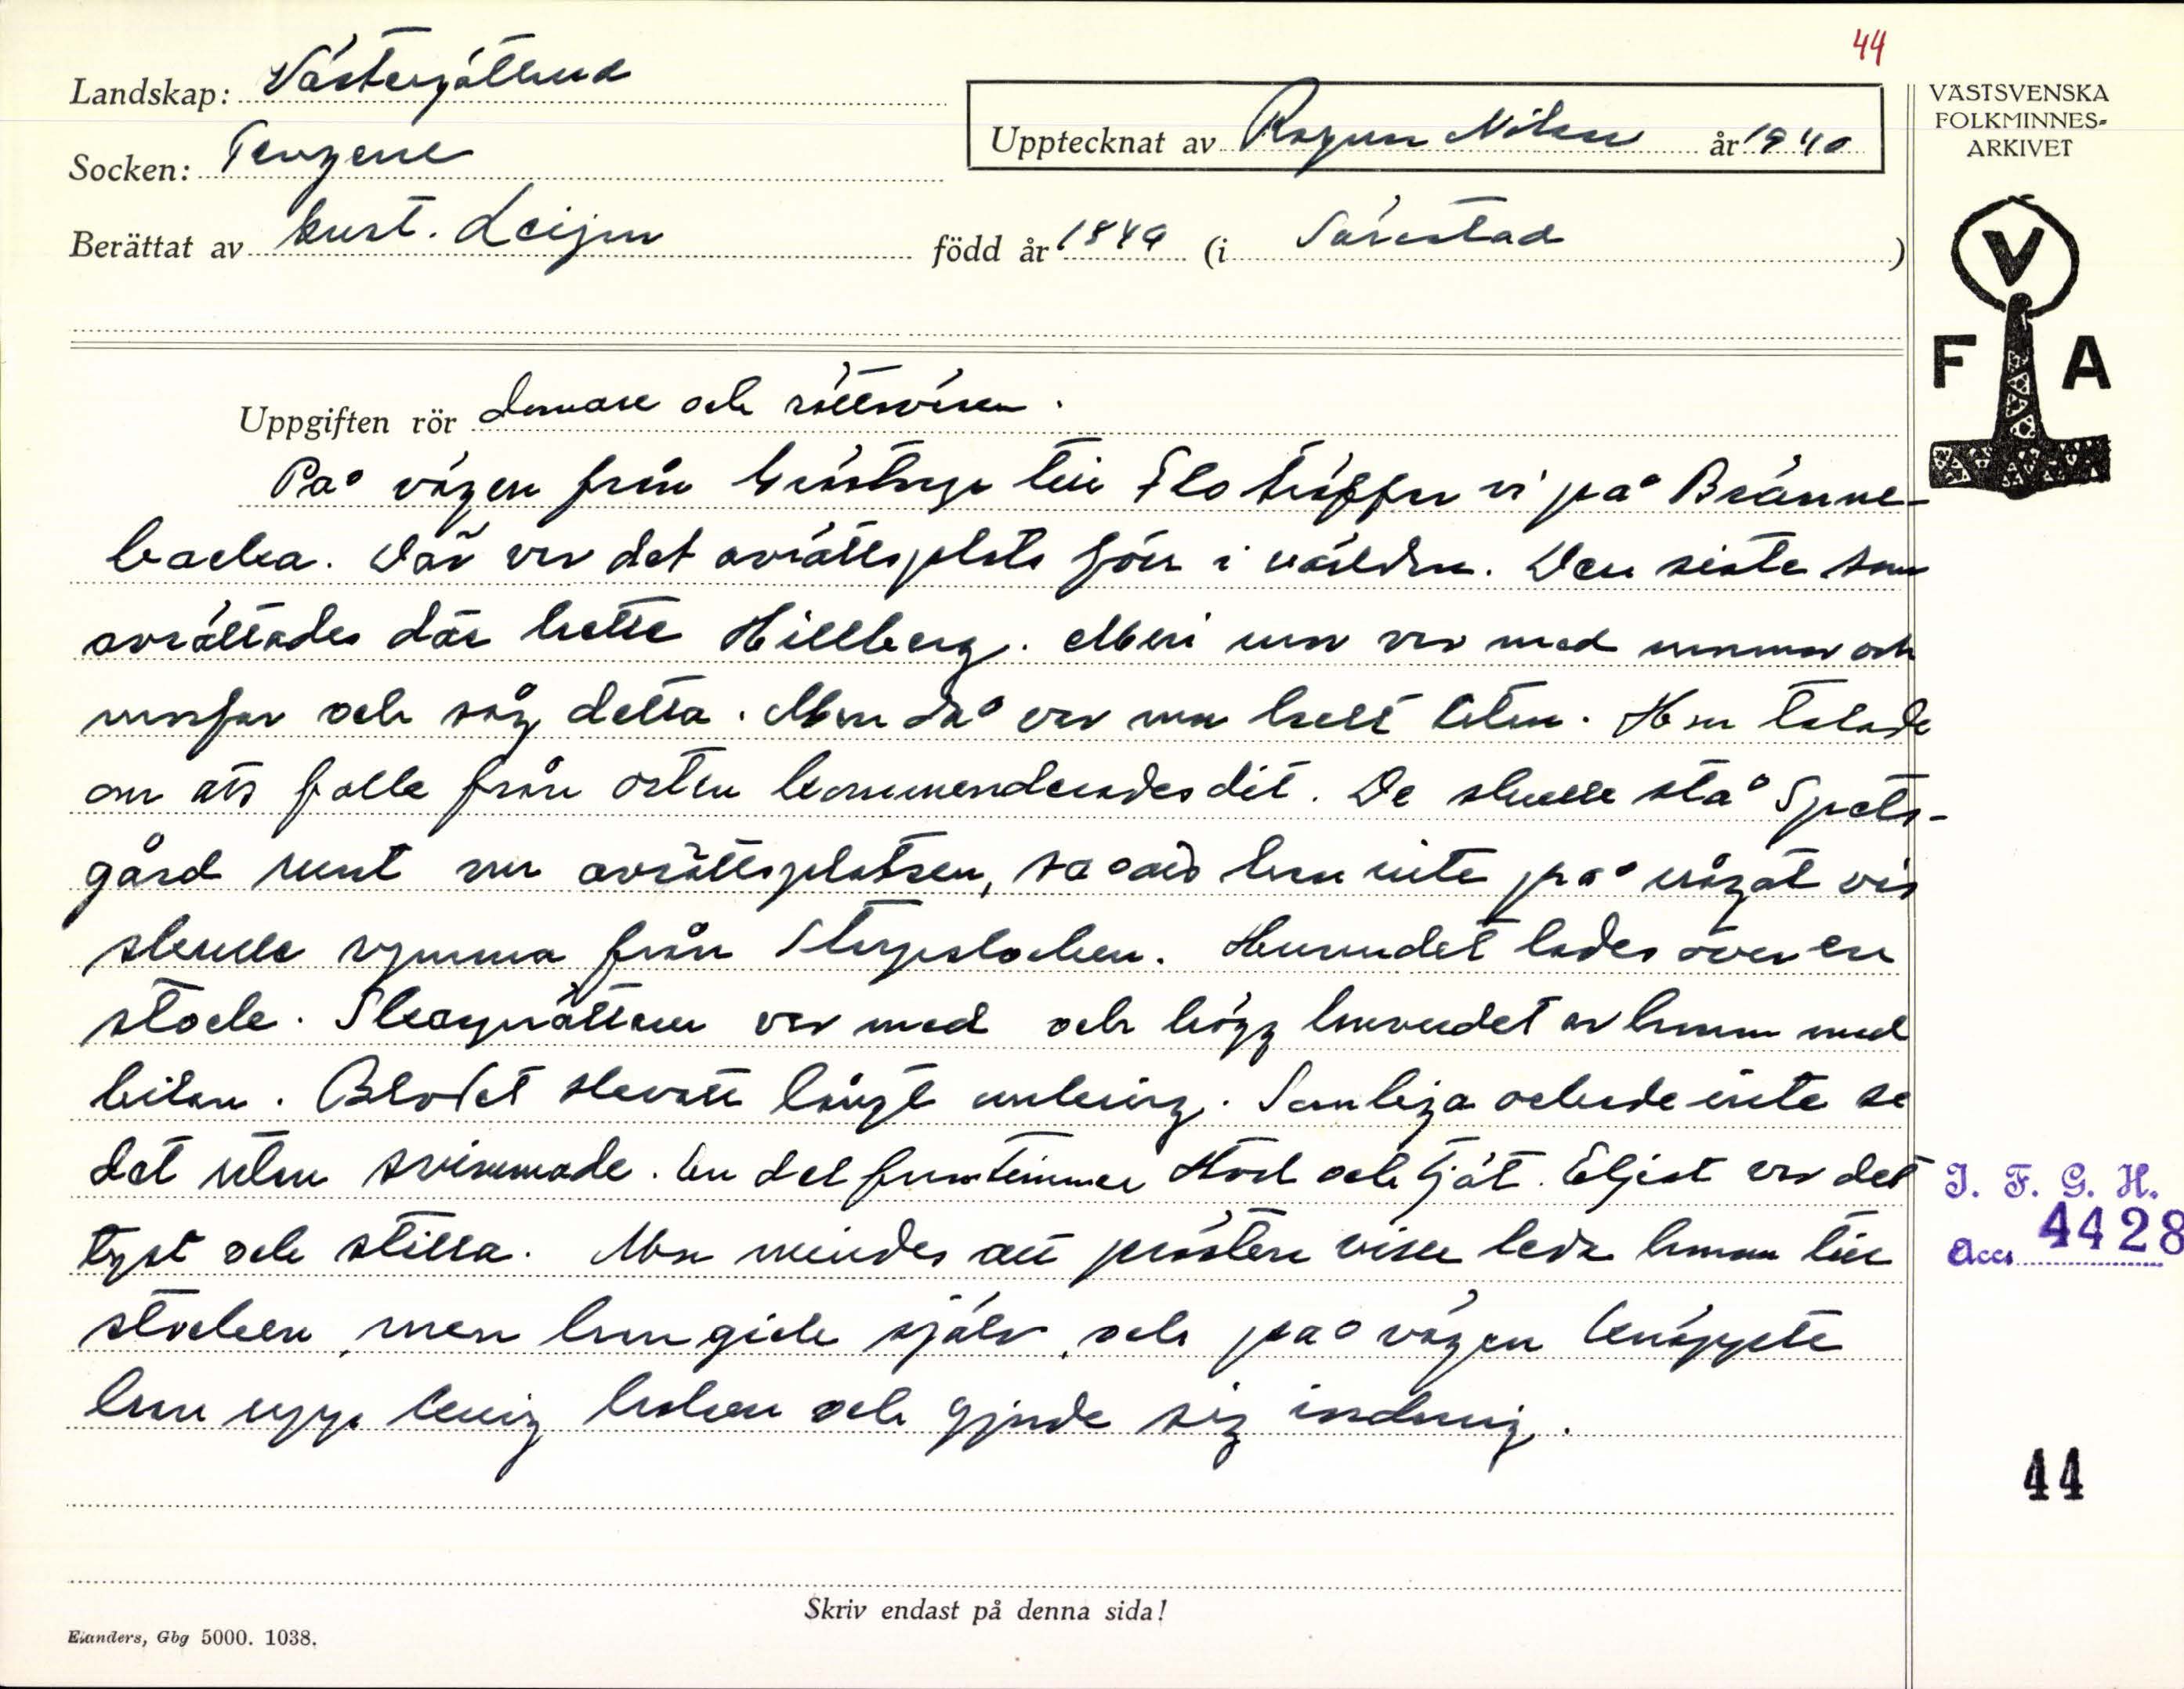 44
Landskap: Västergötland
VÄSTSVENSKA
FOLKMINNES-
ARKIVET
Upptecknat av Ragnar Nilsson år 1940
Socken: Tengene
Berättat av Gust. Leijon född år 1849 (i Särestad)
V
F A
Uppgiften rör domare och rättsväsen.
På vägen från Grästorp till Flo träffar vi på Bränne-
backa. Där var det avrättsplats förr i världen. Den siste som
avrättades där hette Hillberg. Mor var med mormor och
morfar och såg detta. Men då var mor helt liten. Hon talade
om att folk från orten kommenderades dit. De skulle stå Spets-
gård runt om avrättsplatsen, så att han inte på något vis
skulle rymma från Stupstocken. Huvudet lades över en
stock. Skarprättaren var med och högg huvudet av honom med
bilan. Blodet skvatt långt omkring. Somliga orkade inte se
det utan svimmade. En del fruntimmer stod och tjöt. Eljest var det
tyst och stilla. Mor mindes att prästen ville leda honom till
stocken, men han gick själv, och på vägen knäppte
han upp kring halsen och gjorde sig iordning.
I. F. G. H.
Acc. 4428
44
Skriv endast på denna sida!
Elanders, Gbg 5000. 1038.